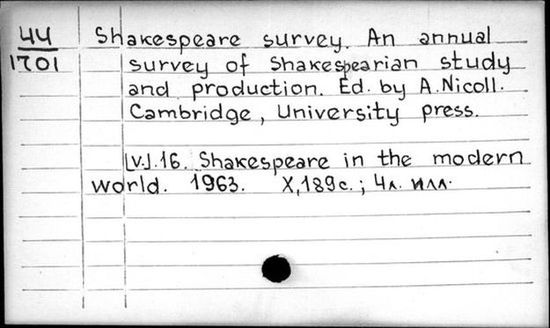 44
1701
Shakespeare survey. An annual
survey of Shakespearian study
and production. Ed. by A. Nicoll.
Cambridge, University press.
[v.].16. Shakespeare in the modern
world. 1963. X,189с.; 4л. илл.